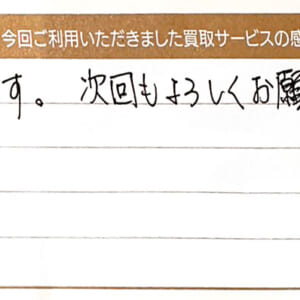 今回ご利用いただきました買取サービスの感
す。次回もよろしくお願